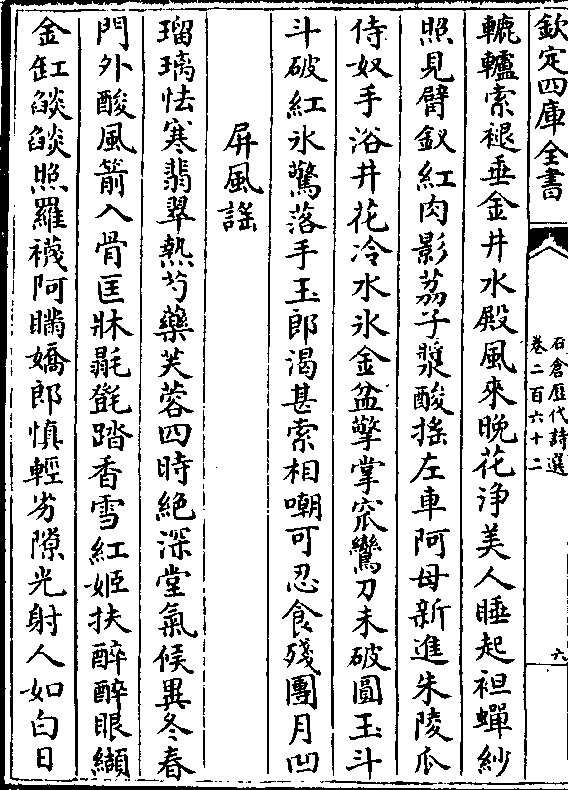 欽定四庫全書
石倉歴代詩選
卷二百六十二
六
轆轤索褪垂金井水殿風來晚花浄美人睡起袒蟬紗
照見臂釵紅肉影荔子漿酸搖左車阿母新進朱陵瓜
侍奴手浴井花冷水氷金盆擎掌窊鸞刀未破圓玉斗
斗破紅氷驚落手玉郎渴甚索相嘲可忍食殘團月凹
屏風謡
瑠璃怯寒翡翠熱芍藥芙蓉四時絶深堂氣候異冬春
門外酸風箭入骨匡牀毾㲪踏香雪紅姬扶醉醉眼纈
金缸燄燄照羅襪阿瞞嬌郎慎輕劣隙光射人如白日